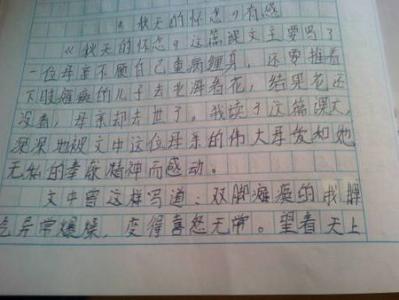 《秋天的怀念》有感
《秋天的怀念》这篇课文主要写了
一位母亲不顾自己重病缠身，还要推着
下肢瘫痪的儿子去北海看花，结果花还
没看，母亲却去世了。我读了这篇课文，
深深地被文中这位母亲的伟大母爱和她
无私的奉献精神而感动。
文中曾这样写道：双脚瘫痪的我脾
气异常爆燥，变得喜怒无常。望着天上